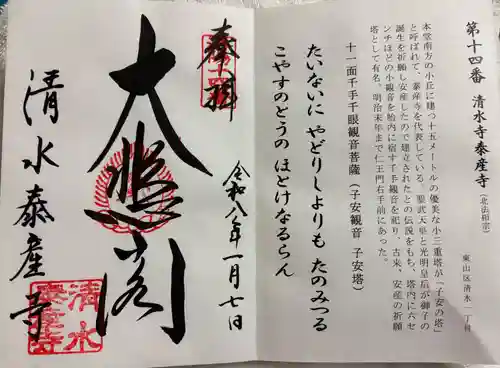 第十四番 清水寺泰産寺 (北法相宗)
東山区清水一丁目
本堂南方の小丘に建つ十五メートルの優美な小三重塔が「子安の塔」
と呼ばれて、泰産寺を代表している。聖武天皇と光明皇后が御子の
誕生を祈願し安産したので建立されたとの伝説をもち、塔内に六セ
ンチほどの小観音を胎内に宿す千手観音を祀り、古来、安産の祈願
塔として有名。明治末年まで仁王門右手前にあった。
十一面千手千眼観音菩薩 (子安観音 子安塔)
たいないに やどりしよりも たのみつる
こやすのとうの ほとけなるらん
奉拝
令和八年一月七日
大悲閣
清水泰産寺
清水
泰産寺